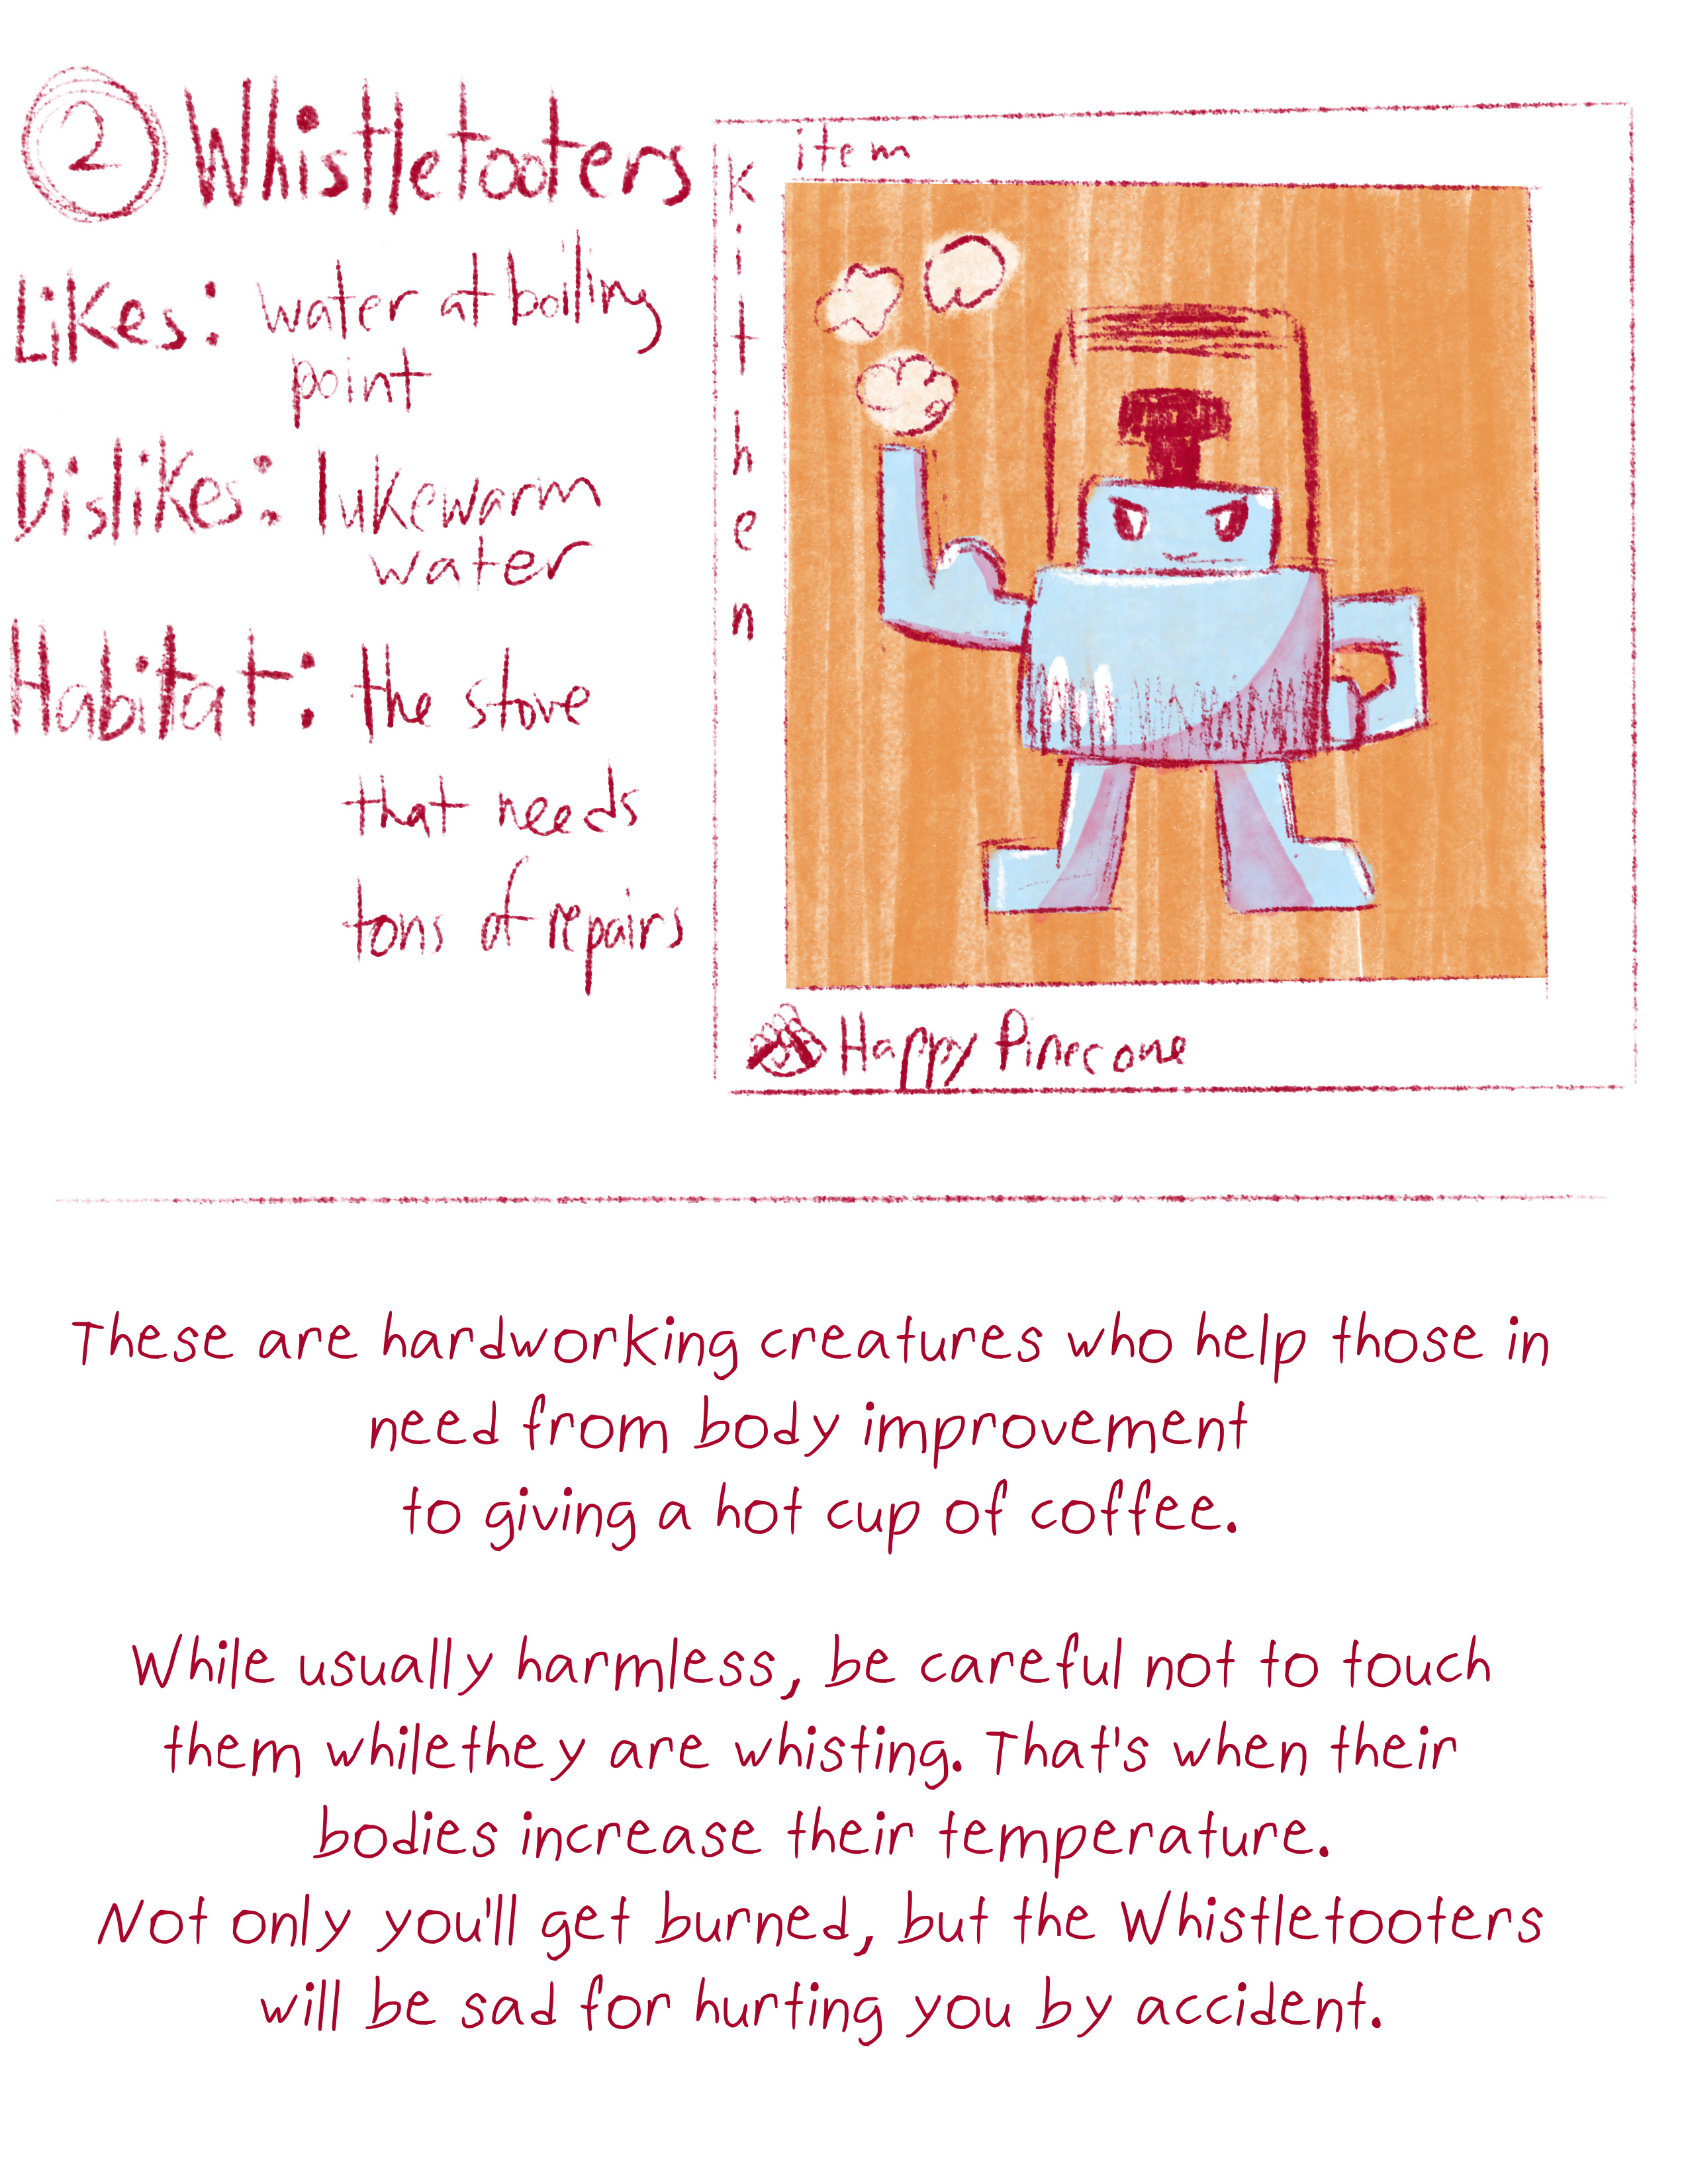 2 Whistletooters
Likes: water at boiling
point
Dislikes: lukewarm
water
Habitat: the stove
that needs
tons of repairs
item
kithen
Happy Pinecone
These are hardworking creatures who help those in
need from body improvement
to giving a hot cup of coffee.
While usually harmless, be careful not to touch
them whilethey are whisting. That's when their
bodies increase their temperature.
Not only you'll get burned, but the Whistletooters
will be sad for hurting you by accident.